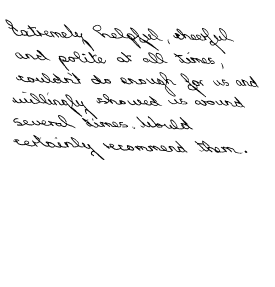 Extremely helpful, cheerful
and polite at all times,
couldn't do enough for us and
willingly showed us around
several times. Would
certainly recommend them.